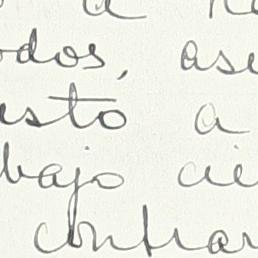 a
odos, ase
esto a
bajo cie
contrar